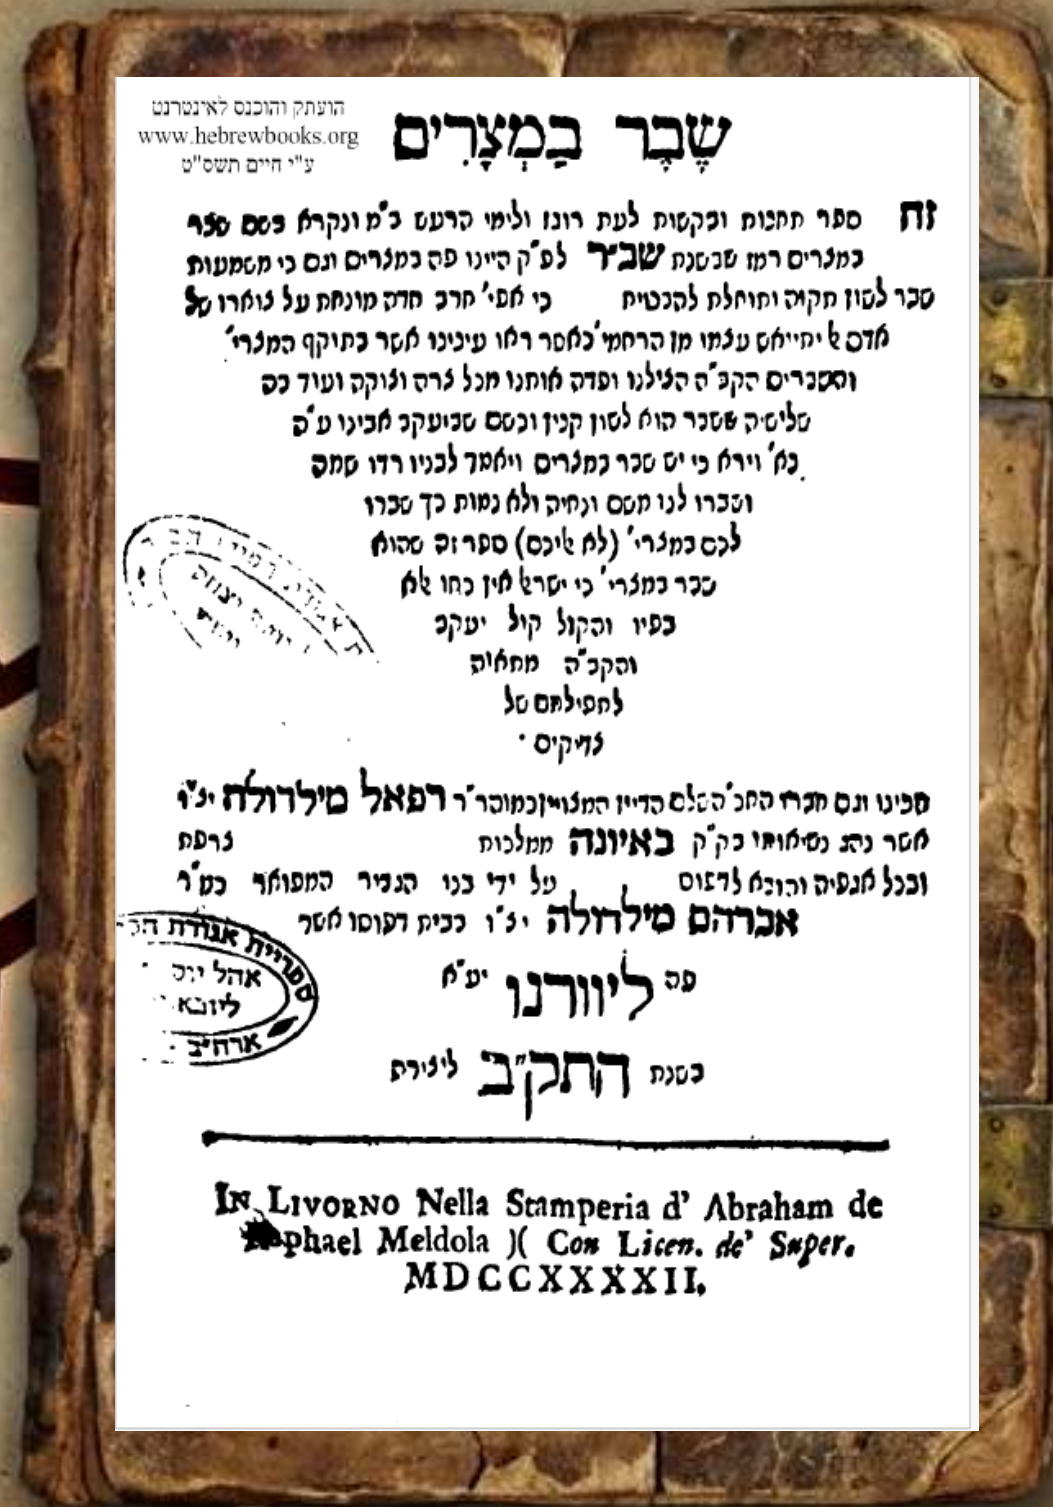 הועתק והוכנס לאינטרנט
www.hebrewbooks.org
ע"י חיים תשס"ט
שֶׁבֶר בְּמִצְרִים
זה ספר תחנות ובקשות לעת רוגז ולימי הרעש ב"מ ונקרא בשם שבר
במצרים רמז שבשנת שב"ר לפ"ק היינו פה במצרים וגם כי משמעות
שבר לשון תקוה ותוחלת להבטיח כי אפי' חרב חדה מונחת על צוארו של
אדם אל יתייאש עצמו מן הרחמי' כאשר ראו עינינו אשר בתוקף המצרי'
והשברים הקב"ה הצילנו ופדה אותנו מכל צרה וצוקה ועוד בה
שלישיה ששבר הוא לשון קנין וכשם שביעקב אבינו ע"ה
נא' וירא כי יש שבר במצרים ויאמר לבניו רדו שמה
ושברו לנו משם ונחיה ולא נמות כך שברו
לכם במצרי' (לא אליכם) ספר זה שהוא
שבר במצרי' כי ישראל אין כחו אלא
בפיו והקול קול יעקב
והקב"ה מתאוה
לתפילתם של
צדיקים
אשר נהג נשיאותו בק"ק באיונה ממלכות צרפת
ובכל אגפיה והובא לדפוס על ידי בנו הגביר המפואר כמ"ר
אברהם מילדולה יצ"ו בבית דפוסו אשר
פה ליוורנו יע"א
בשנת התק"ב ליצירת
ספריית אגודת
אהל
ארה"ב
IN LIVORNO Nella Stamperia d' Abraham de
Raphael Meldola )( Con Licen. de' Super.
MDCCXXXXII.